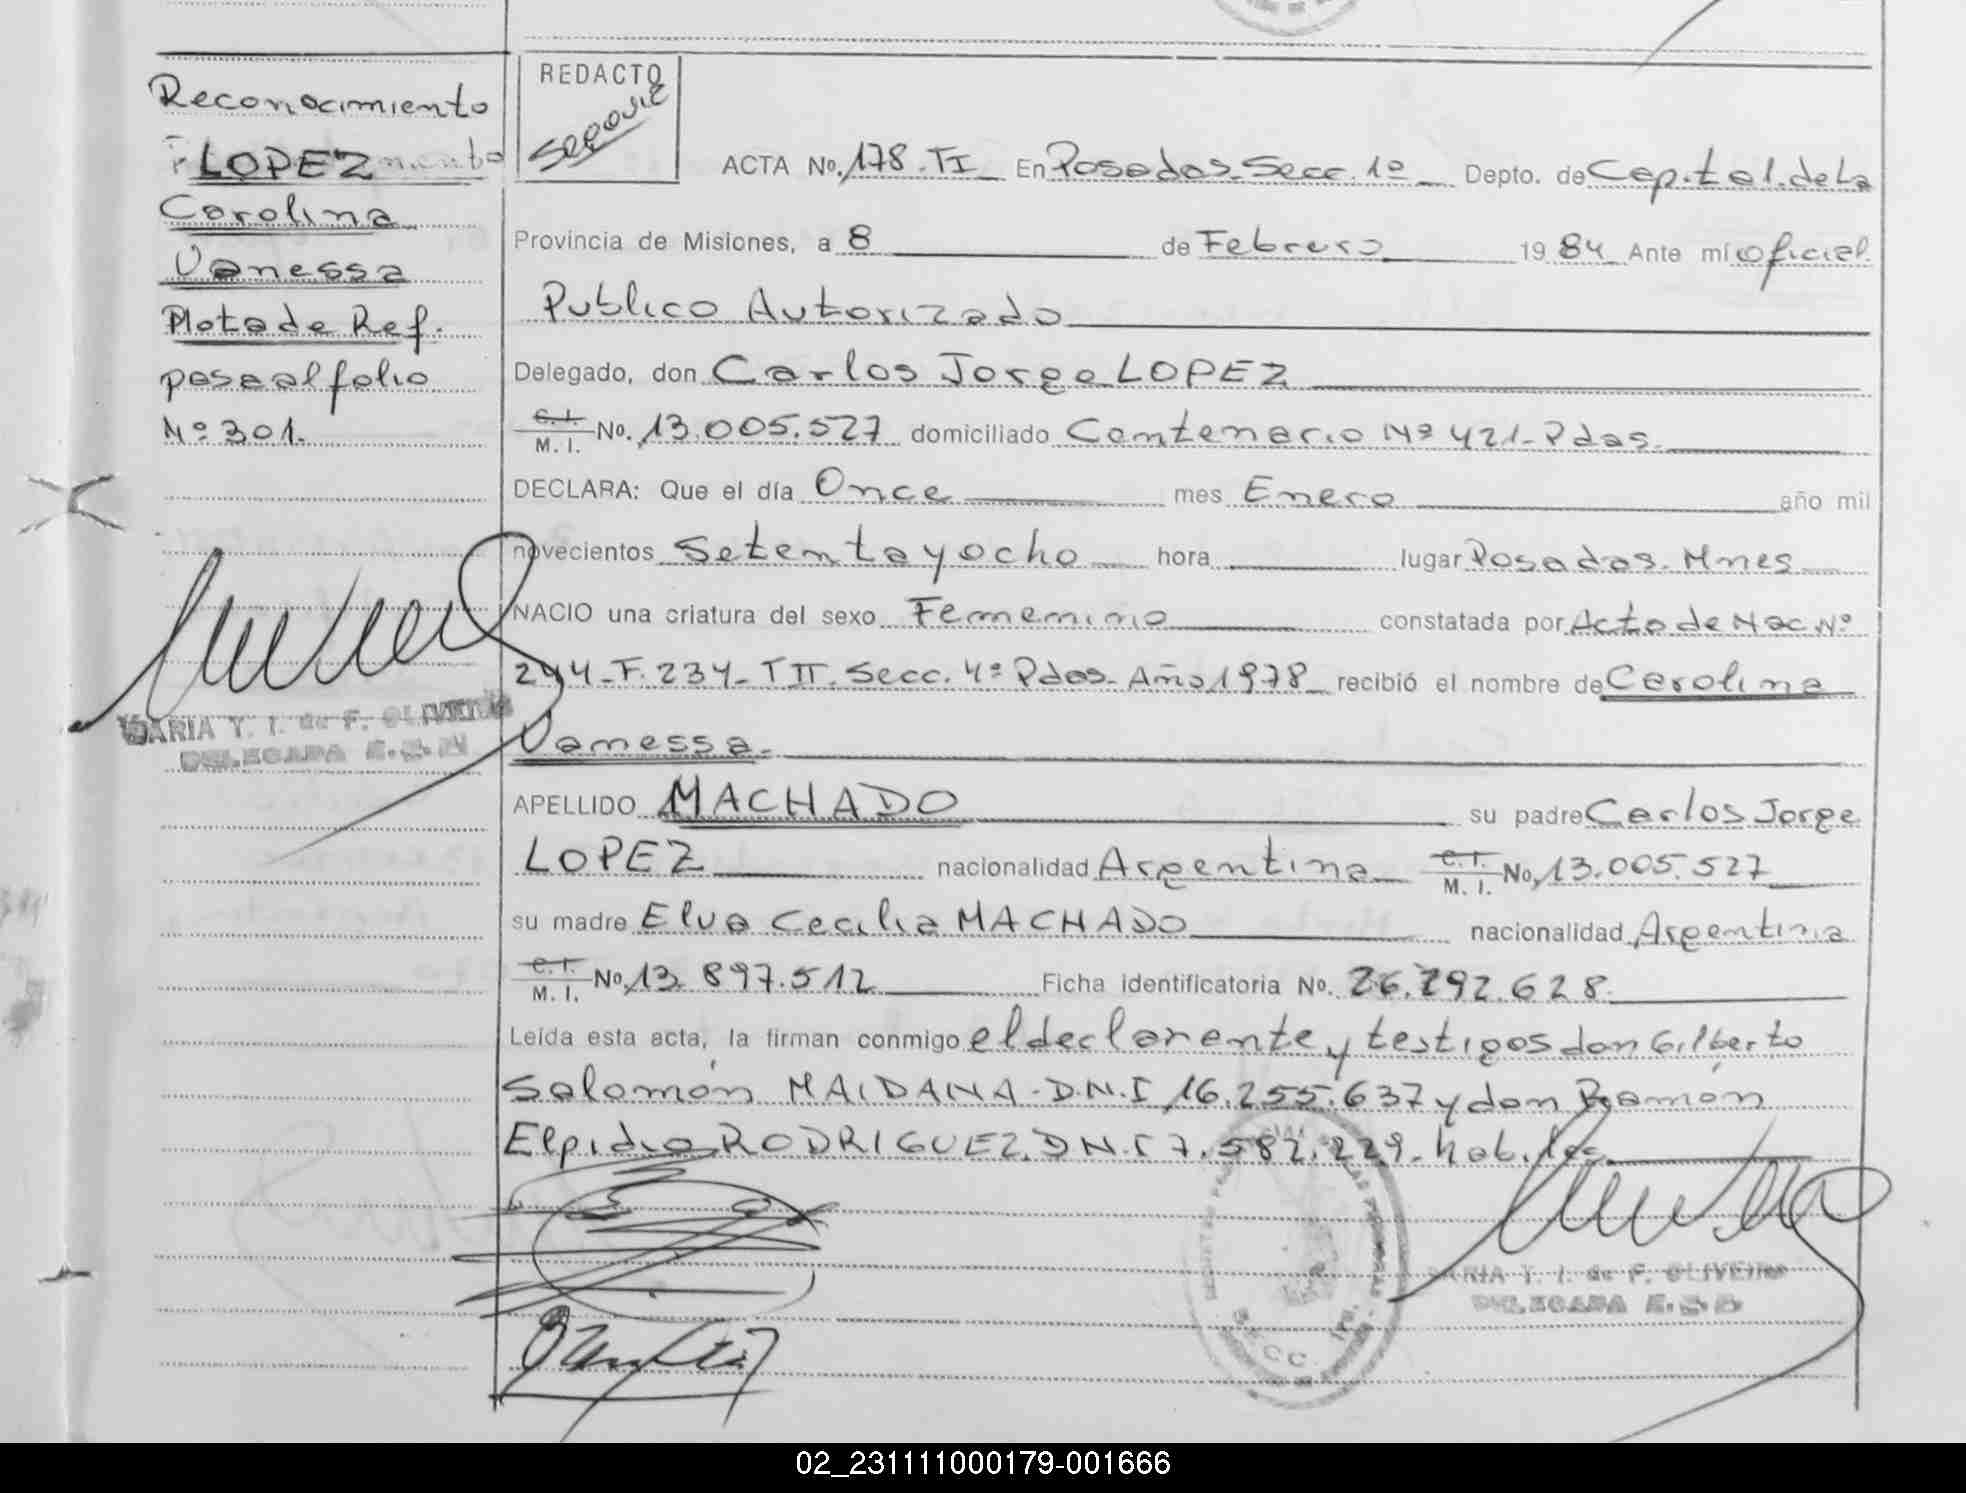 Reconocimiento
LOPEZ
Carolina
Vanessa
Nota de Ref.
pase al folio
Nº 301.
REDACTO
Segovie
ACTA No. 178. TI En Posadas. Secc. 1º Depto. de Capital. de La
Provincia de Misiones, a 8 de Febrero 19 84 Ante mí oficial
Publico Autorizado
Delegado, don Carlos Jorge LOPEZ
C. I.
M. I. No. 13.005.527 domiciliado Centenario Nº 421- Pdas.
DECLARA: Que el día Once mes Enero año mil
novecientos Setenta y ocho hora lugar Posadas. Mnes
NACIO una criatura del sexo Femenino constatada por Acta de Nac. Nº
244- F. 234- TII. Secc. 4º Pdas- Año 1978 recibió el nombre de Carolina
Vanessa.
APELLIDO MACHADO su padre Carlos Jorge
LOPEZ nacionalidad Argentina C. I.
M. I. No. 13.005.527
su madre Elva Cecilia MACHADO nacionalidad Argentina
C. I.
M. I. No. 13.897.512 Ficha identificatoria No. 26.292.628.
Leída esta acta, la firman conmigo el declarante y testigos don Gilberto
Salomón MAIDANA- D.N.I 16.255.637 y don Ramón
Elpidio RODRIGUEZ. D.N.I 7.582.229- habiles
MARIA Y. I. de F. OLIVEIRA
DELEGADA
MARIA Y. I. de F. OLIVEIRA
DELEGADA
02_231111000179-001666